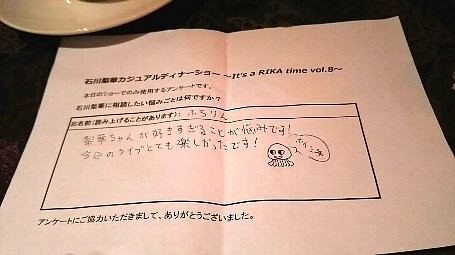 石川梨華カジュアルディナーショー ～It's a RIKA time vol.8～
本日のショーでのみ使用するアンケートです。
石川梨華に相談したい悩みごとは何ですか?
お名前(読み上げることがあります): ふちりん
梨華ちゃんが好きすぎることが悩みです!
今日のライブとても楽しかったです!
アンケートにご協力いただきまして、ありがとうございました。